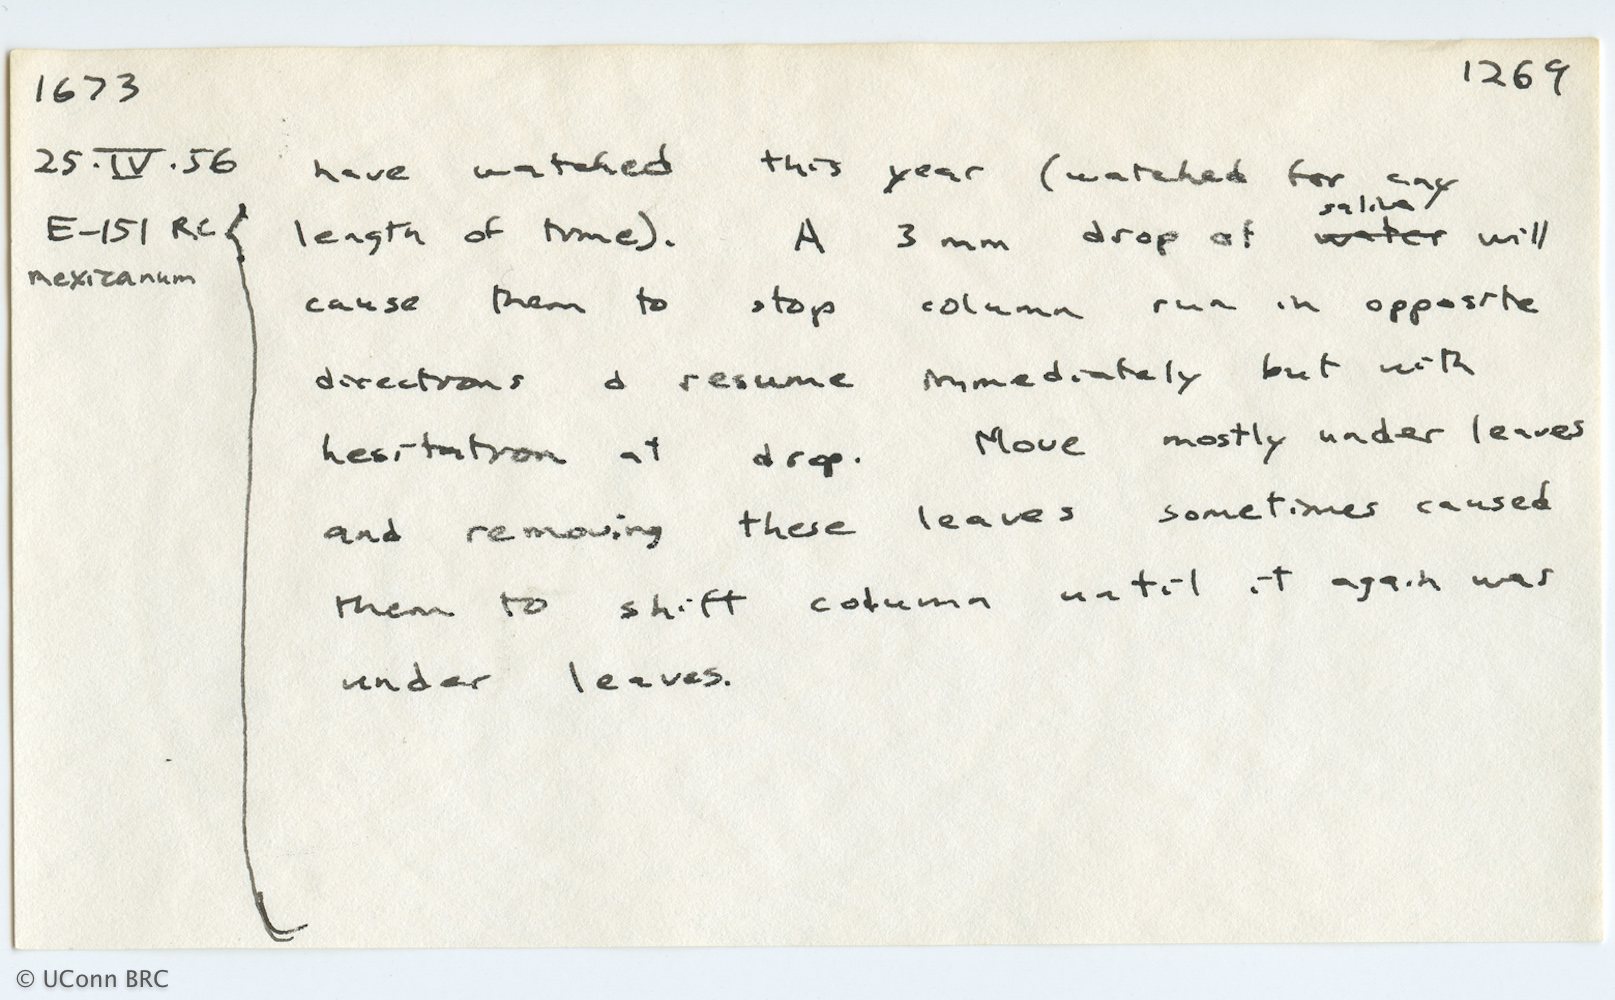 1673
1269
25·IV·56 have watched this year (watched for any
E-151 RC length of time). A 3 mm drop of saliva water will
mexicanum cause them to stop column run in opposite
directions & resume immediately but with
hesitation at drop. Move mostly under leaves
and removing these leaves sometimes caused
them to shift column until it again was
under leaves.
© UConn BRC